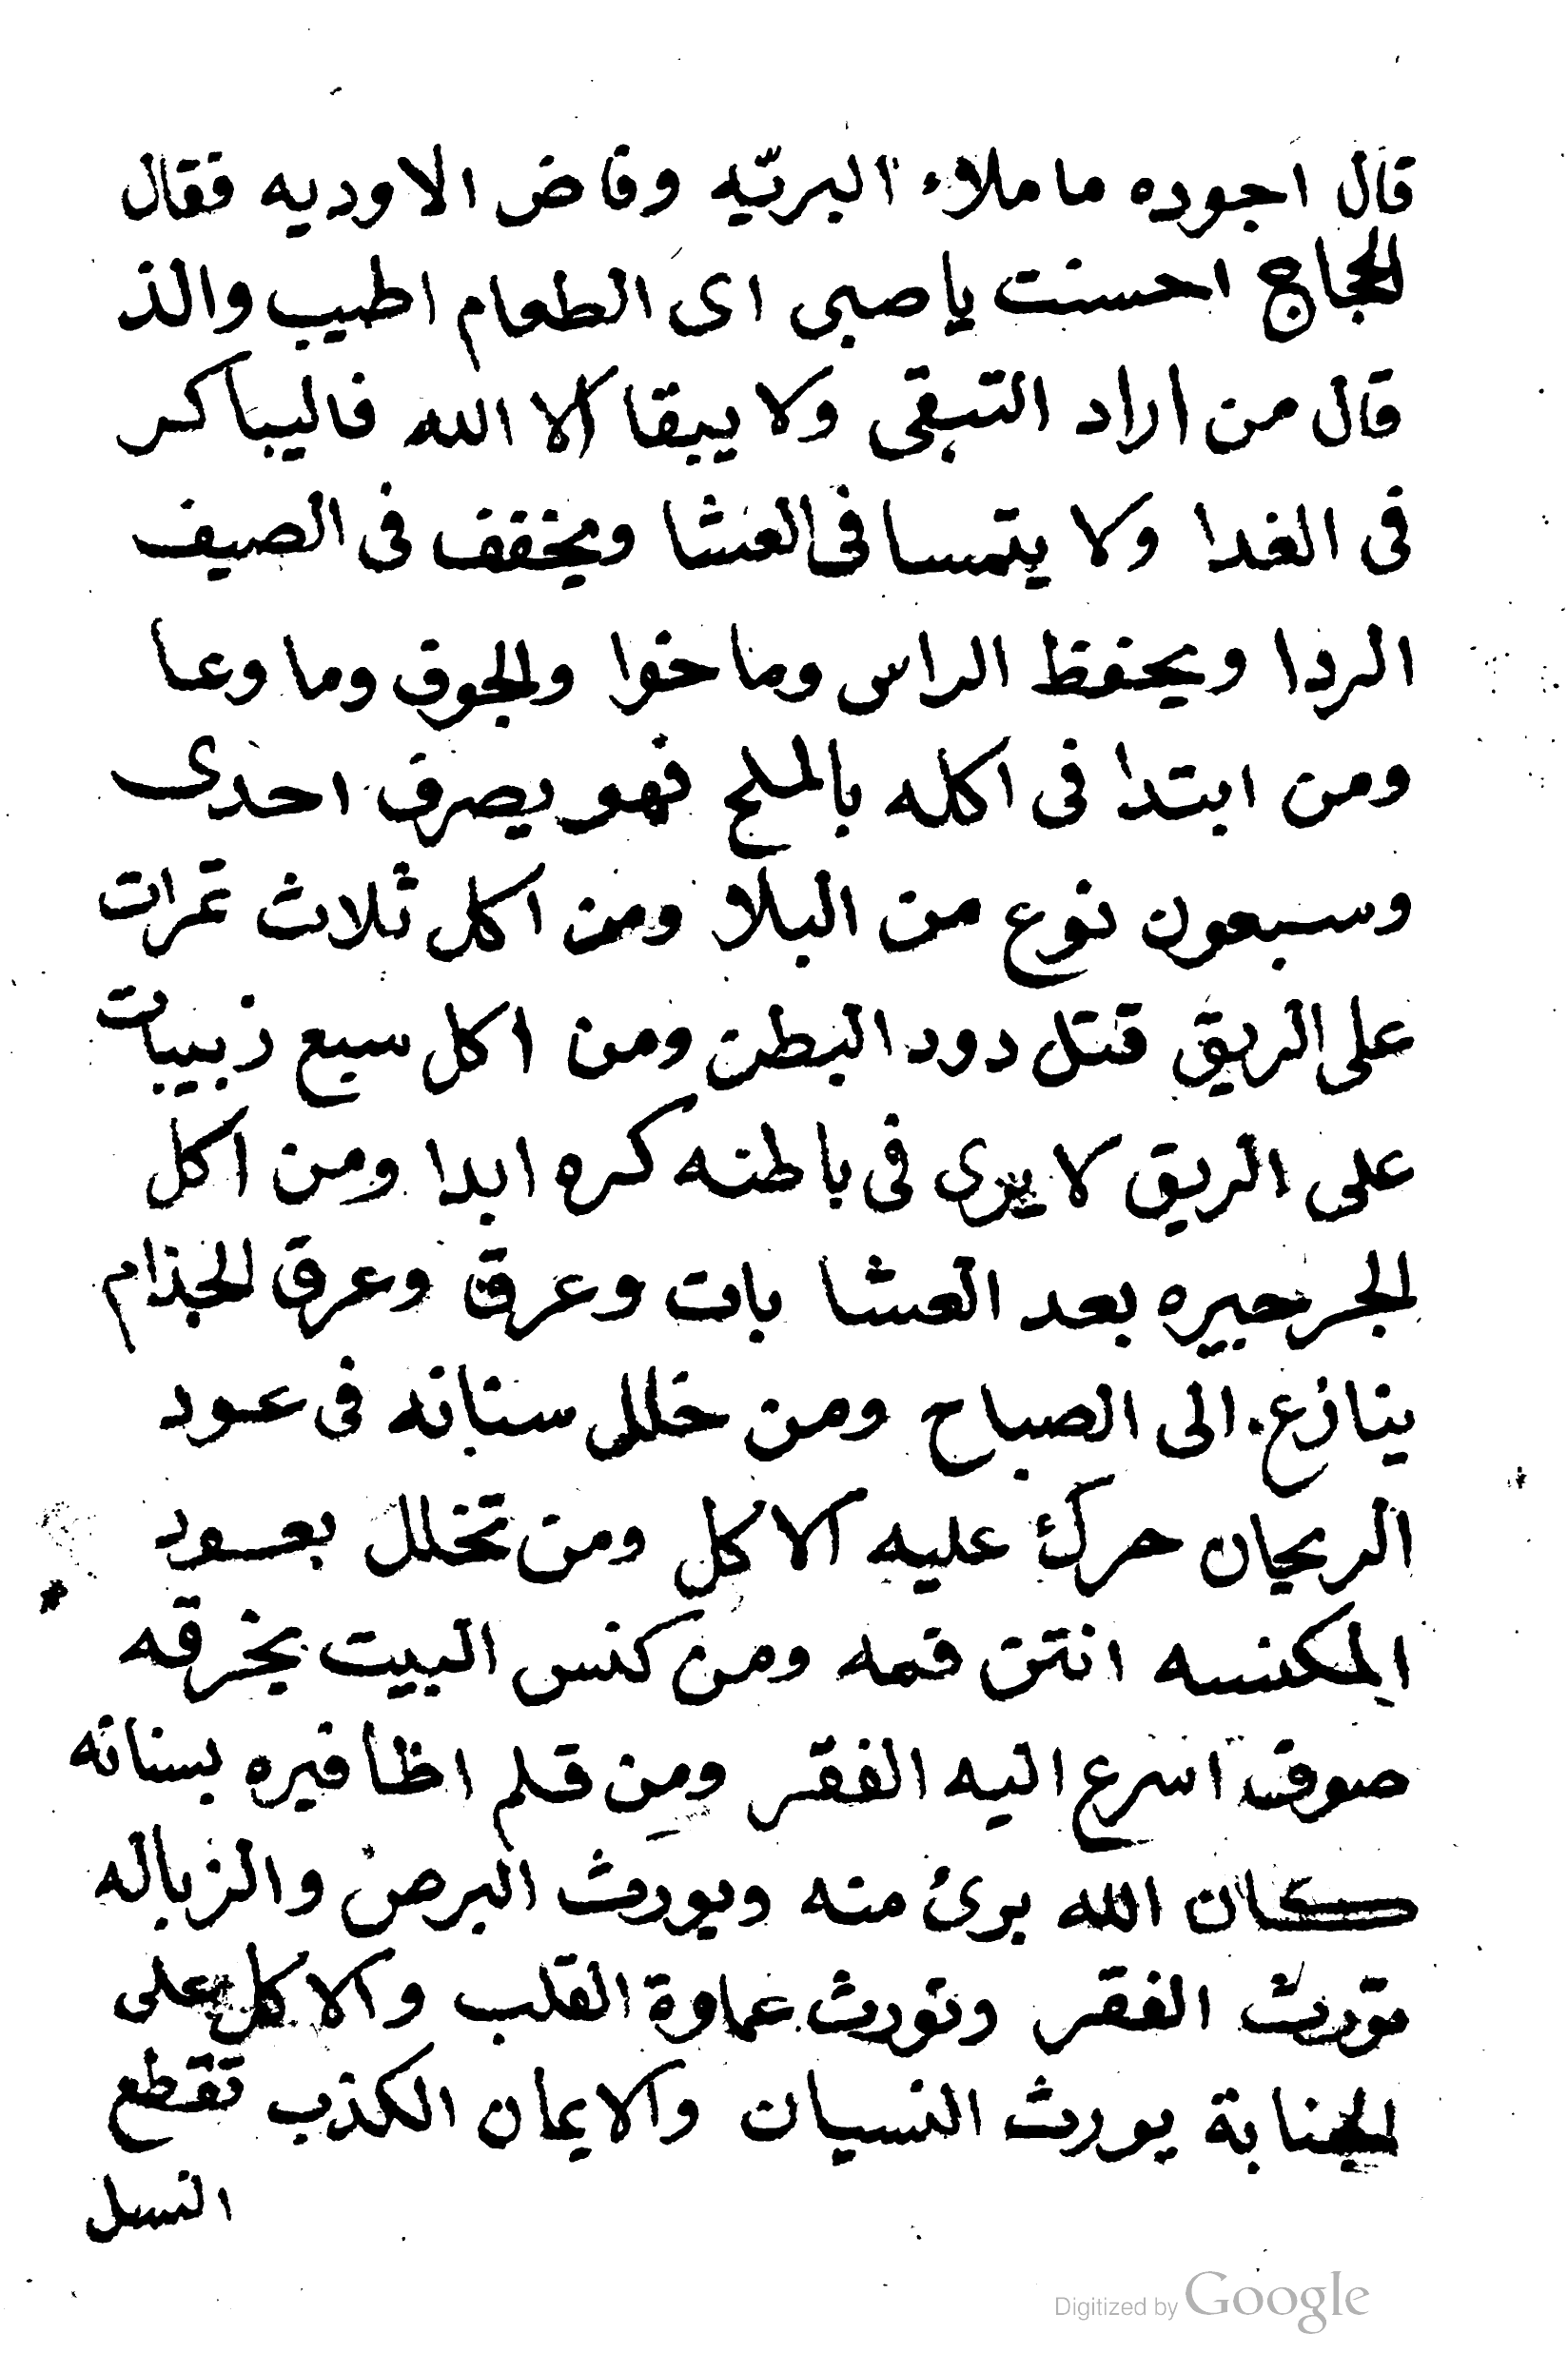 قال اجوده ما ملاء البريّه وفاض الاوديه فقال
الحجاج احسنت يا صبى اى الطعام اطيب والذ
قال من اراد التبقى ولا يبقا الا الله فاليباكر
فى الغدا ولا يتمسا فى العشا ويخفف فى الصيف
الردا ويحفظ الراس وما حوا والجوف وما وعا
ومن ابتدا فى اكله بالملح فهو يصرف احدى
وسبعون نوع من البلا ومن اكل ثلاث تمرات
على الريق قتل دود البطن ومن اكل سبع زبيبات
على الريق لا يرى فى باطنه كره ابدا ومن اكل
الجرجيره بعد العشا بات وعرق وعرق الجذام
ينازع الى الصباح ومن خلل سنانه فى عود
الريحان حرك عليه الاكل ومن تخلل بعود
المكنسه انتن فمه ومن كنس البيت بخرقه
صوف اسرع اليه الفقر ومن قلم اظافيره بسنانه
كان الله برئ منه ويورث البرص والزباله
تورث الفقر وتورث عماوة القلب والاكل على
الجنابة يورث النسيان والايمان الكذب تقطع
النسل
Digitized by Google